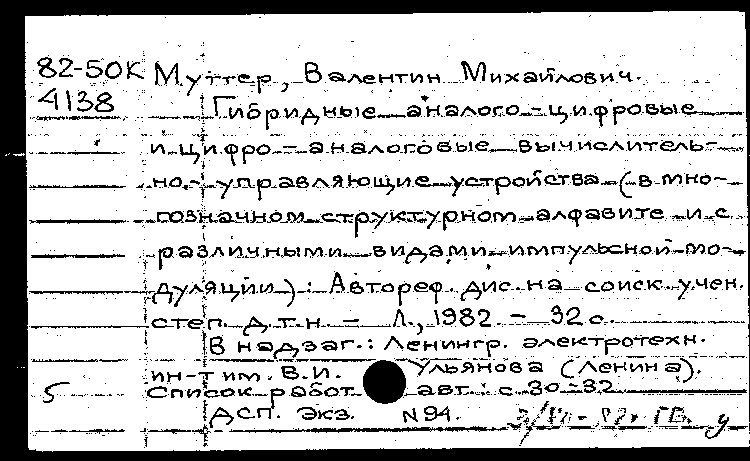 82-50К Муттер, Валентин Михайлович.
4138 Гибридные аналого-цифровые
и цифро-аналоговые вычислитель-
но-управляющие устройства (в мно-
гозначном структурном алфавите и с
различными видами импульсной мо-
дуляции): Автореф. дис. на соиск. учен.
степ. д.т.н. - Л., 1982 - 32 с.
В надзаг.: Ленингр. электротехн.
ин-т им. В.И. Ульянова (Ленина).
5 Список работ авт.: с. 30-32
ДСП. Экз. N94.